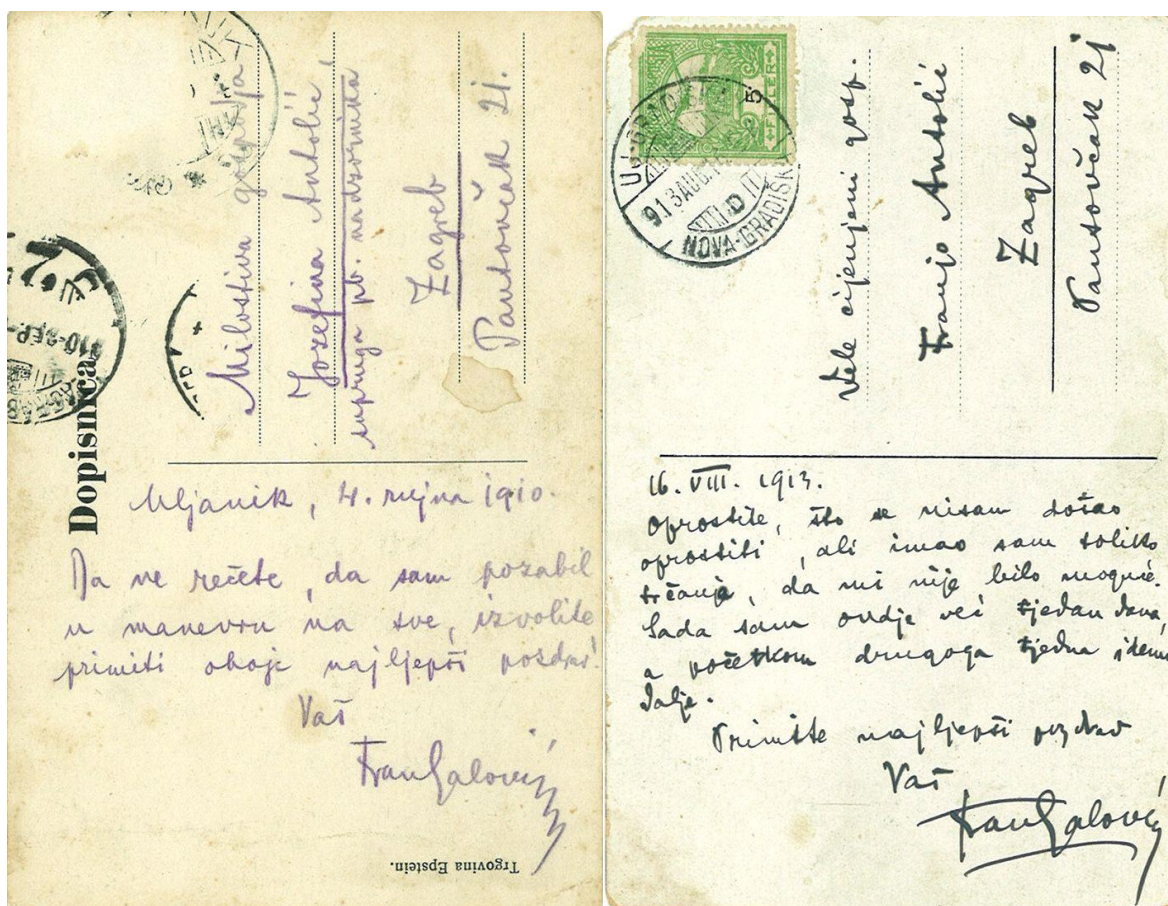 Dopisnica
Milostiva gospodja
Josefina Antolić,
supruga pb. nadzornika
Zagreb
Pantovčak 2j.
Uljanik, 4. rujna 1910.
Da ne rečete, da sam pozabil
u manevru na sve, izvolite
primiti oboje najljepši pozdrav.
Vaš
Fran Galović
Trgovina Epstein.
FILLER
5
NOVA-GRADIŠKA
913 AUG.
Vele cijenjeni gosp.
Franjo Antolić
Zagreb
Pantovčak 2j
16. VIII. 1913.
Oprostite, što se nisam došao
oprostiti, ali imao sam toliko
trčanja, da mi nije bilo moguće.
Sada sam ovdje već tjedan dana,
a početkom drugoga tjedna idemo
dalje.
Primite najljepši pozdrav
Vaš
Fran Galović